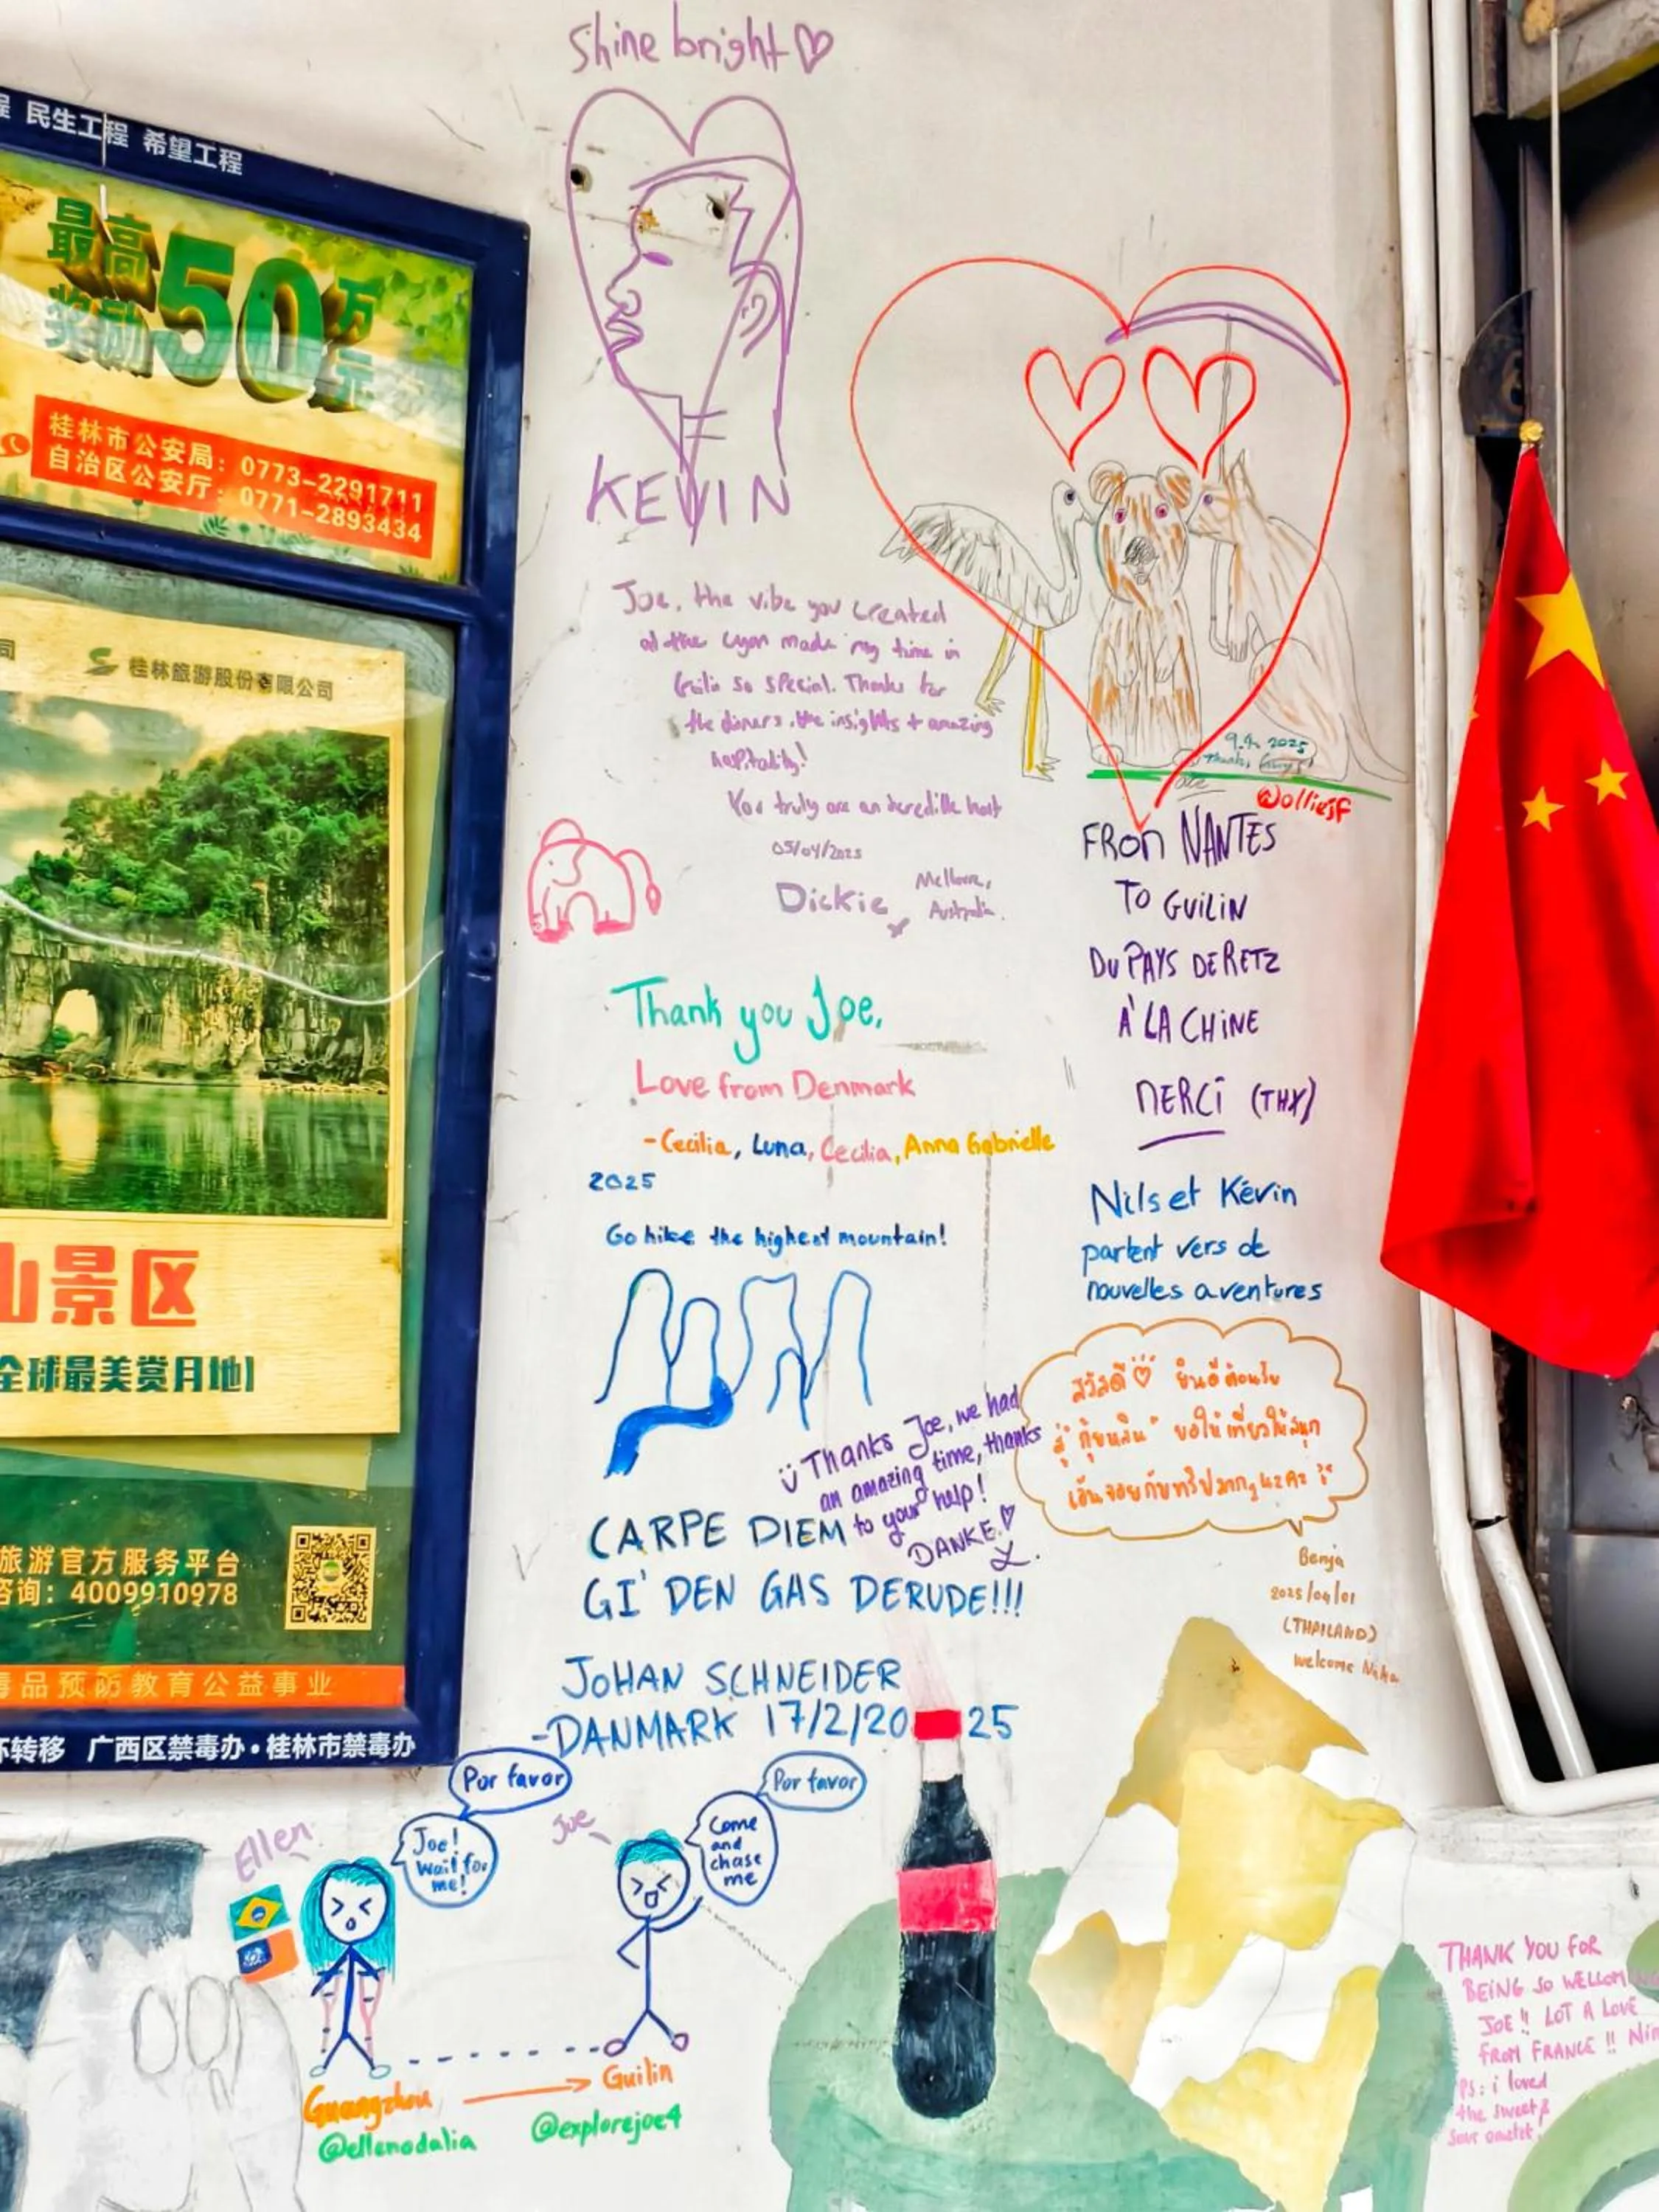 民生工程 希望工程
最高
奖励
50
万
元
桂林市公安局：0773-2291711
自治区公安厅：0771-2893434
司
桂林旅游股份有限公司
山景区
全球最美赏月地
旅游官方服务平台
咨询：4009910978
毒品预防教育公益事业
环转移 广西区禁毒办·桂林市禁毒办
Shine bright
KEVIN
Joe, the vibe you created
at the made my time in
so special. Thanks for
the dinners, the insights + amazing
hospitality!
You truly are an host
05/04/2025
Dickie
Australia.
9.4. 2025
@olliejsf
FROM NANTES
TO GUILIN
DU PAYS DE RETZ
À LA CHINE
MERCI (THX)
Nils et Kévin
partent vers de
nouvelles aventures
Thank you Joe,
Love from Denmark
- Cecilia, Luna, Cecilia, Anna Gabrielle
2025
Go hike the highest mountain!
Thanks Joe, we had
an amazing time, thanks
to your help!
DANKE
สวัสดี ยินดีต้อนรับ
สู่ "กุ้ยหลิน" ขอให้เที่ยวให้สนุก
Benja
2025/04/01
(THAILAND)
Welcome
CARPE DIEM
GI' DEN GAS DERUDE!!!
JOHAN SCHNEIDER
-DANMARK 17/2/2025
Por favor
Joe!
Wait for
me!
Ellen
Joe
Por favor
Come
and
chase
me
Guangzhou
Guilin
@ellenodalia
@explorejoe4
THANK YOU FOR
BEING SO
JOE!! LOT A LOVE
FROM FRANCE!!
PS: i loved
the sweet &
sour